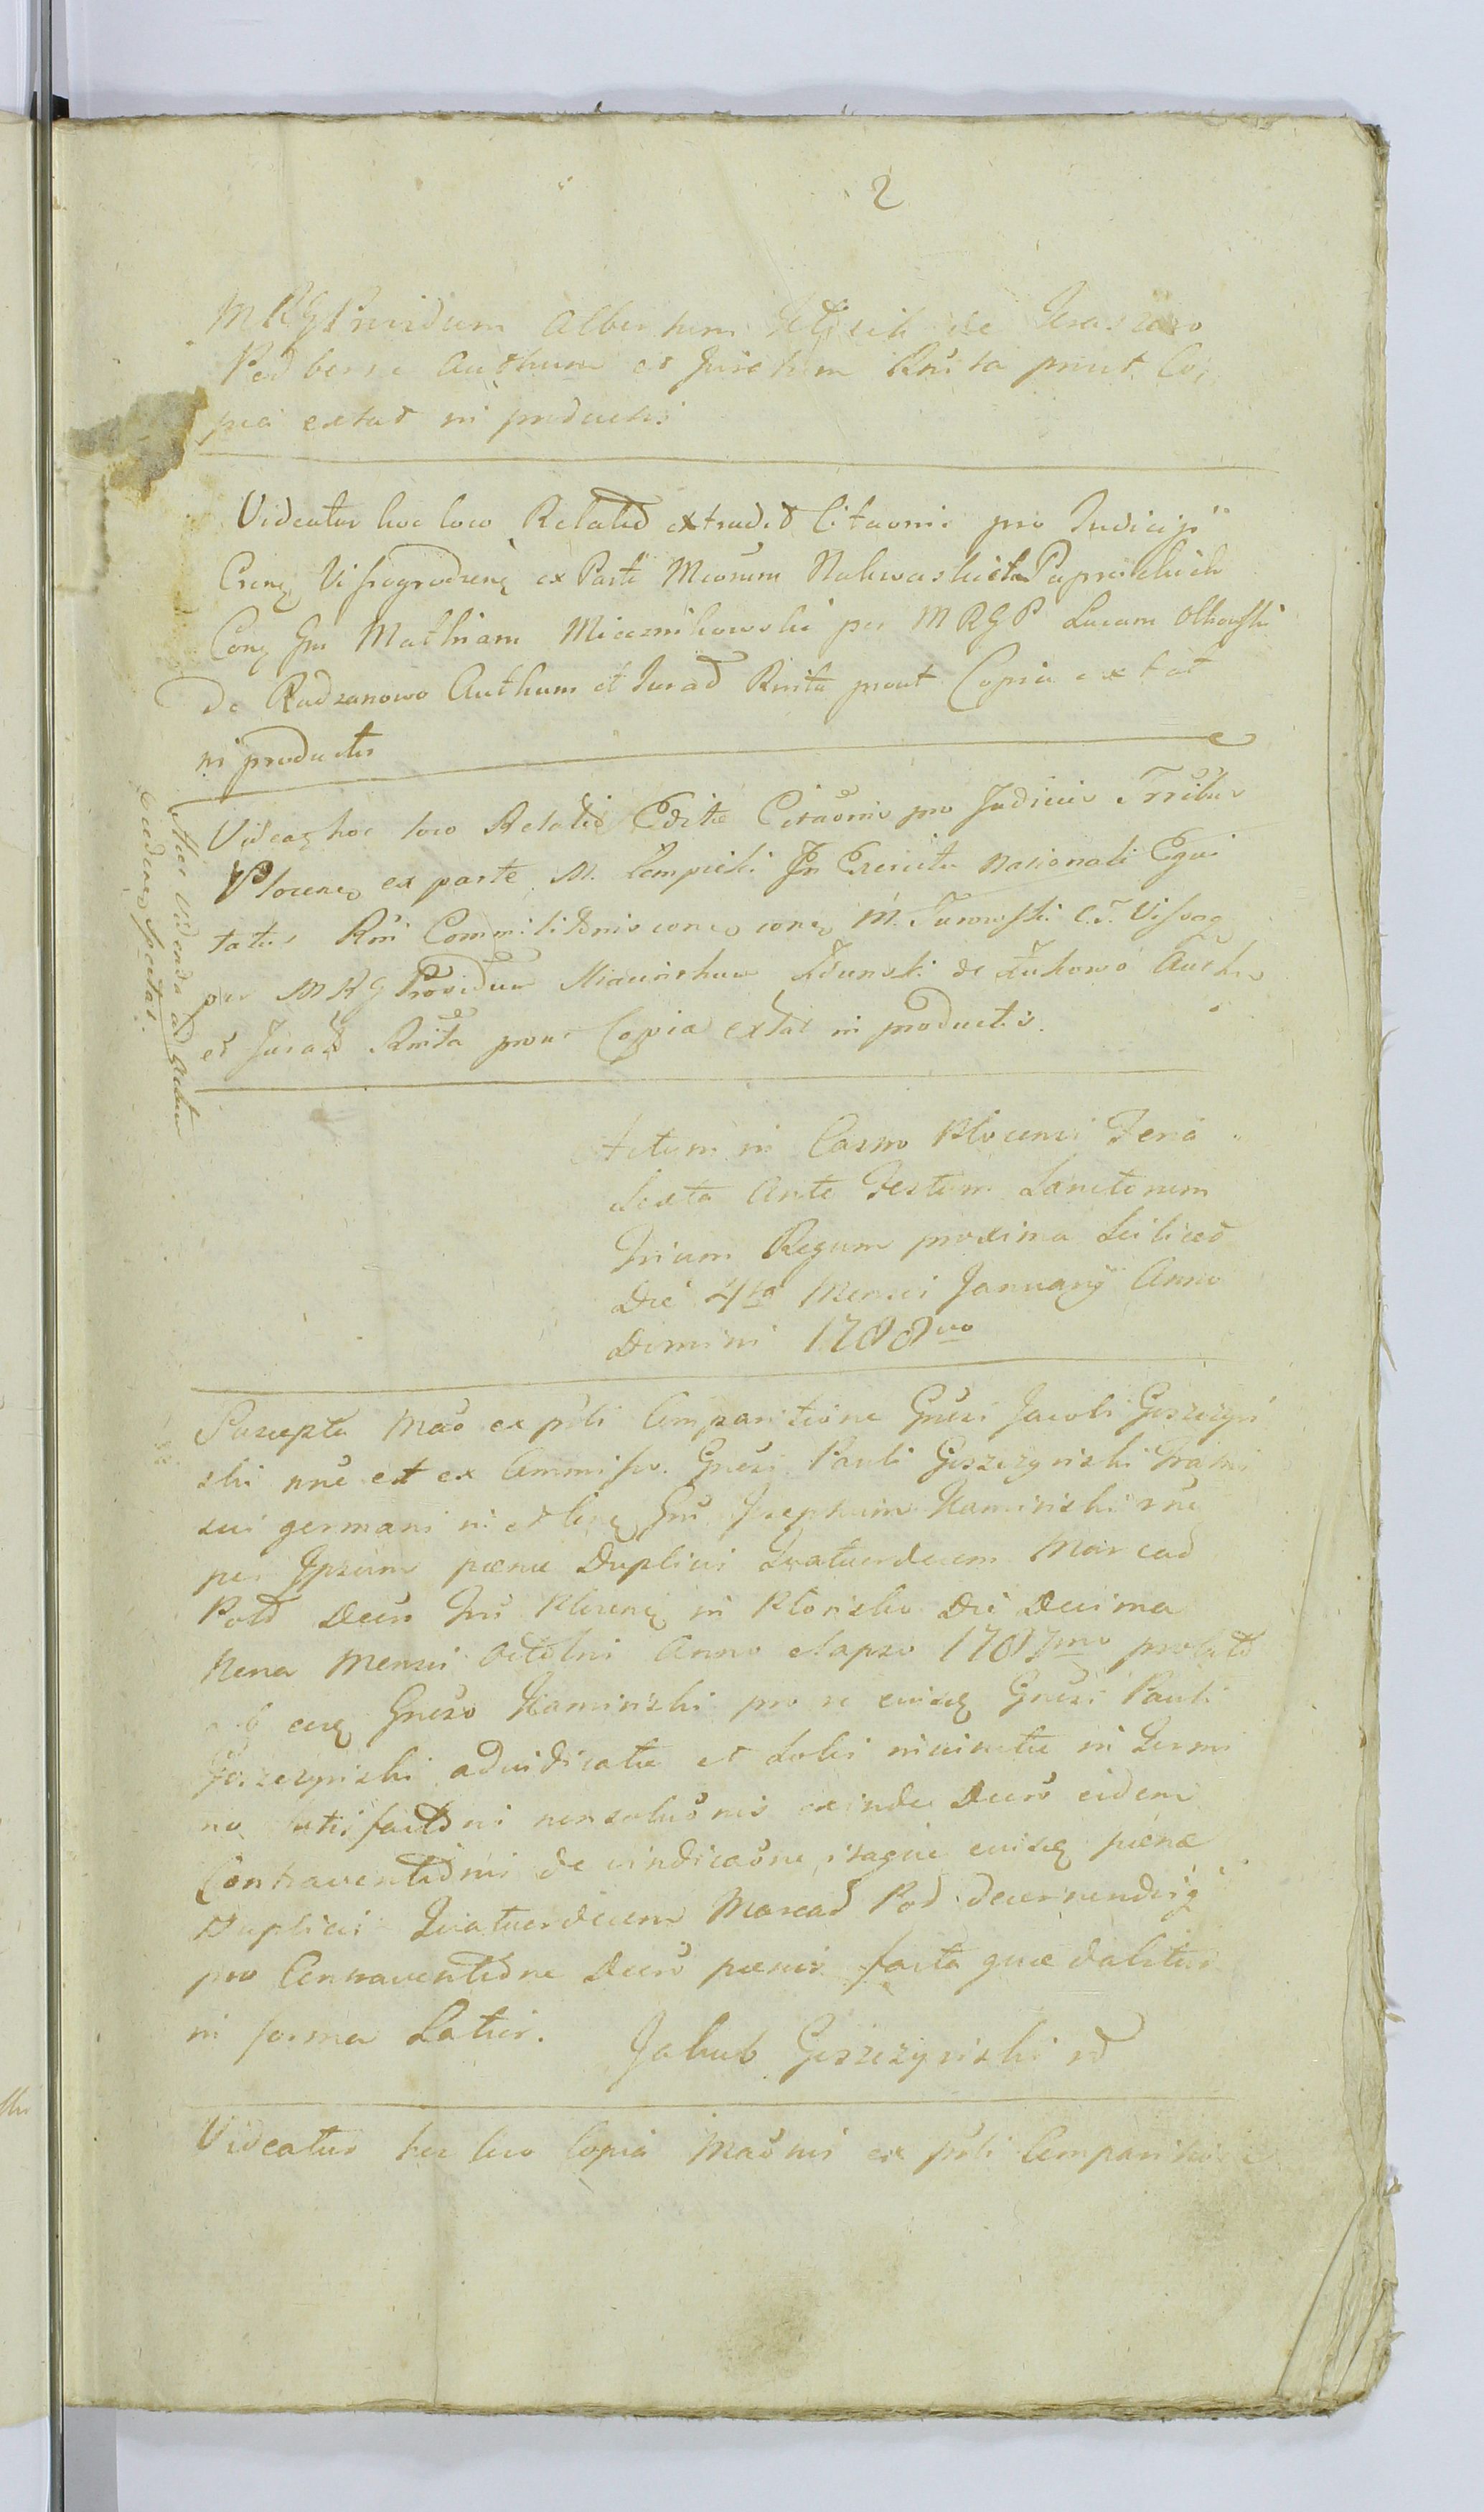 2
MRGProvidum Albertum de
Podborze Authum et Juratum Rnita prout Co,
pia extat in productis
Videatur hoc loco Relatio extradit Citaonis pro Judicijs
Crens Vissogrodiens ex Parte Mcorum Nakwaski et Paprockich
Cong Gm Mathiam Miecznikowski per MRGP Lucam Olkowski
De Radzanowo Authum et Jurad Rnita prout Copia extat
in productis
Hic videnda ad
Videas hoc loco Relatio Edite Citaonis pro Judiciis Tribus
Plocens ex parte M. Lempicki In Exercitu Nationali Equi
tatus Rni Commilitonis cone cone M. Turowski C.T. Vissog
per MRG Providum Zdunski de Lukowo Auth
et Jurad Rnita prout Copia extat in productis.
Actum in Castro Plocensi Feria
Sexta Ante Festum Sanctorum
Trium Regum proxima Scilicet
Die 4ta Mensis Januarij Anno
Domini 1788vo
Suscepta Mao ex psli Comparitione Gnesi Jacobi Goszczyn
ski nne et ex Commisso. Gnesi Pauli Goszczynski Fratris
sui germani in et Gm Josephum Kaminski
per Ipsum pænæ Duplicis Quatuordecem Marcad
Pold Decro Plocens in Plonsko Die Decima
Nona Mensis Octobris Anno elapso 1787mo prolato
ab eoq Gneso Kaminski pro se euisq Gnesi Pauli
Goszczynski adiudicatæ et Solvi iniunctæ in Termi
no satisfactionis nonsoluonis exinde Decro eidem
Contraventionis de vindicaone, itaque euisq pænæ
Duplicis Quatuordecem Marcad Pod decernendisq
pro Contraventione Decro pænis facta quæ dabitur
in forma Latior. Jakub Goszczynski
Videatur hoc loco Copia Maonis ex psli Comparitione